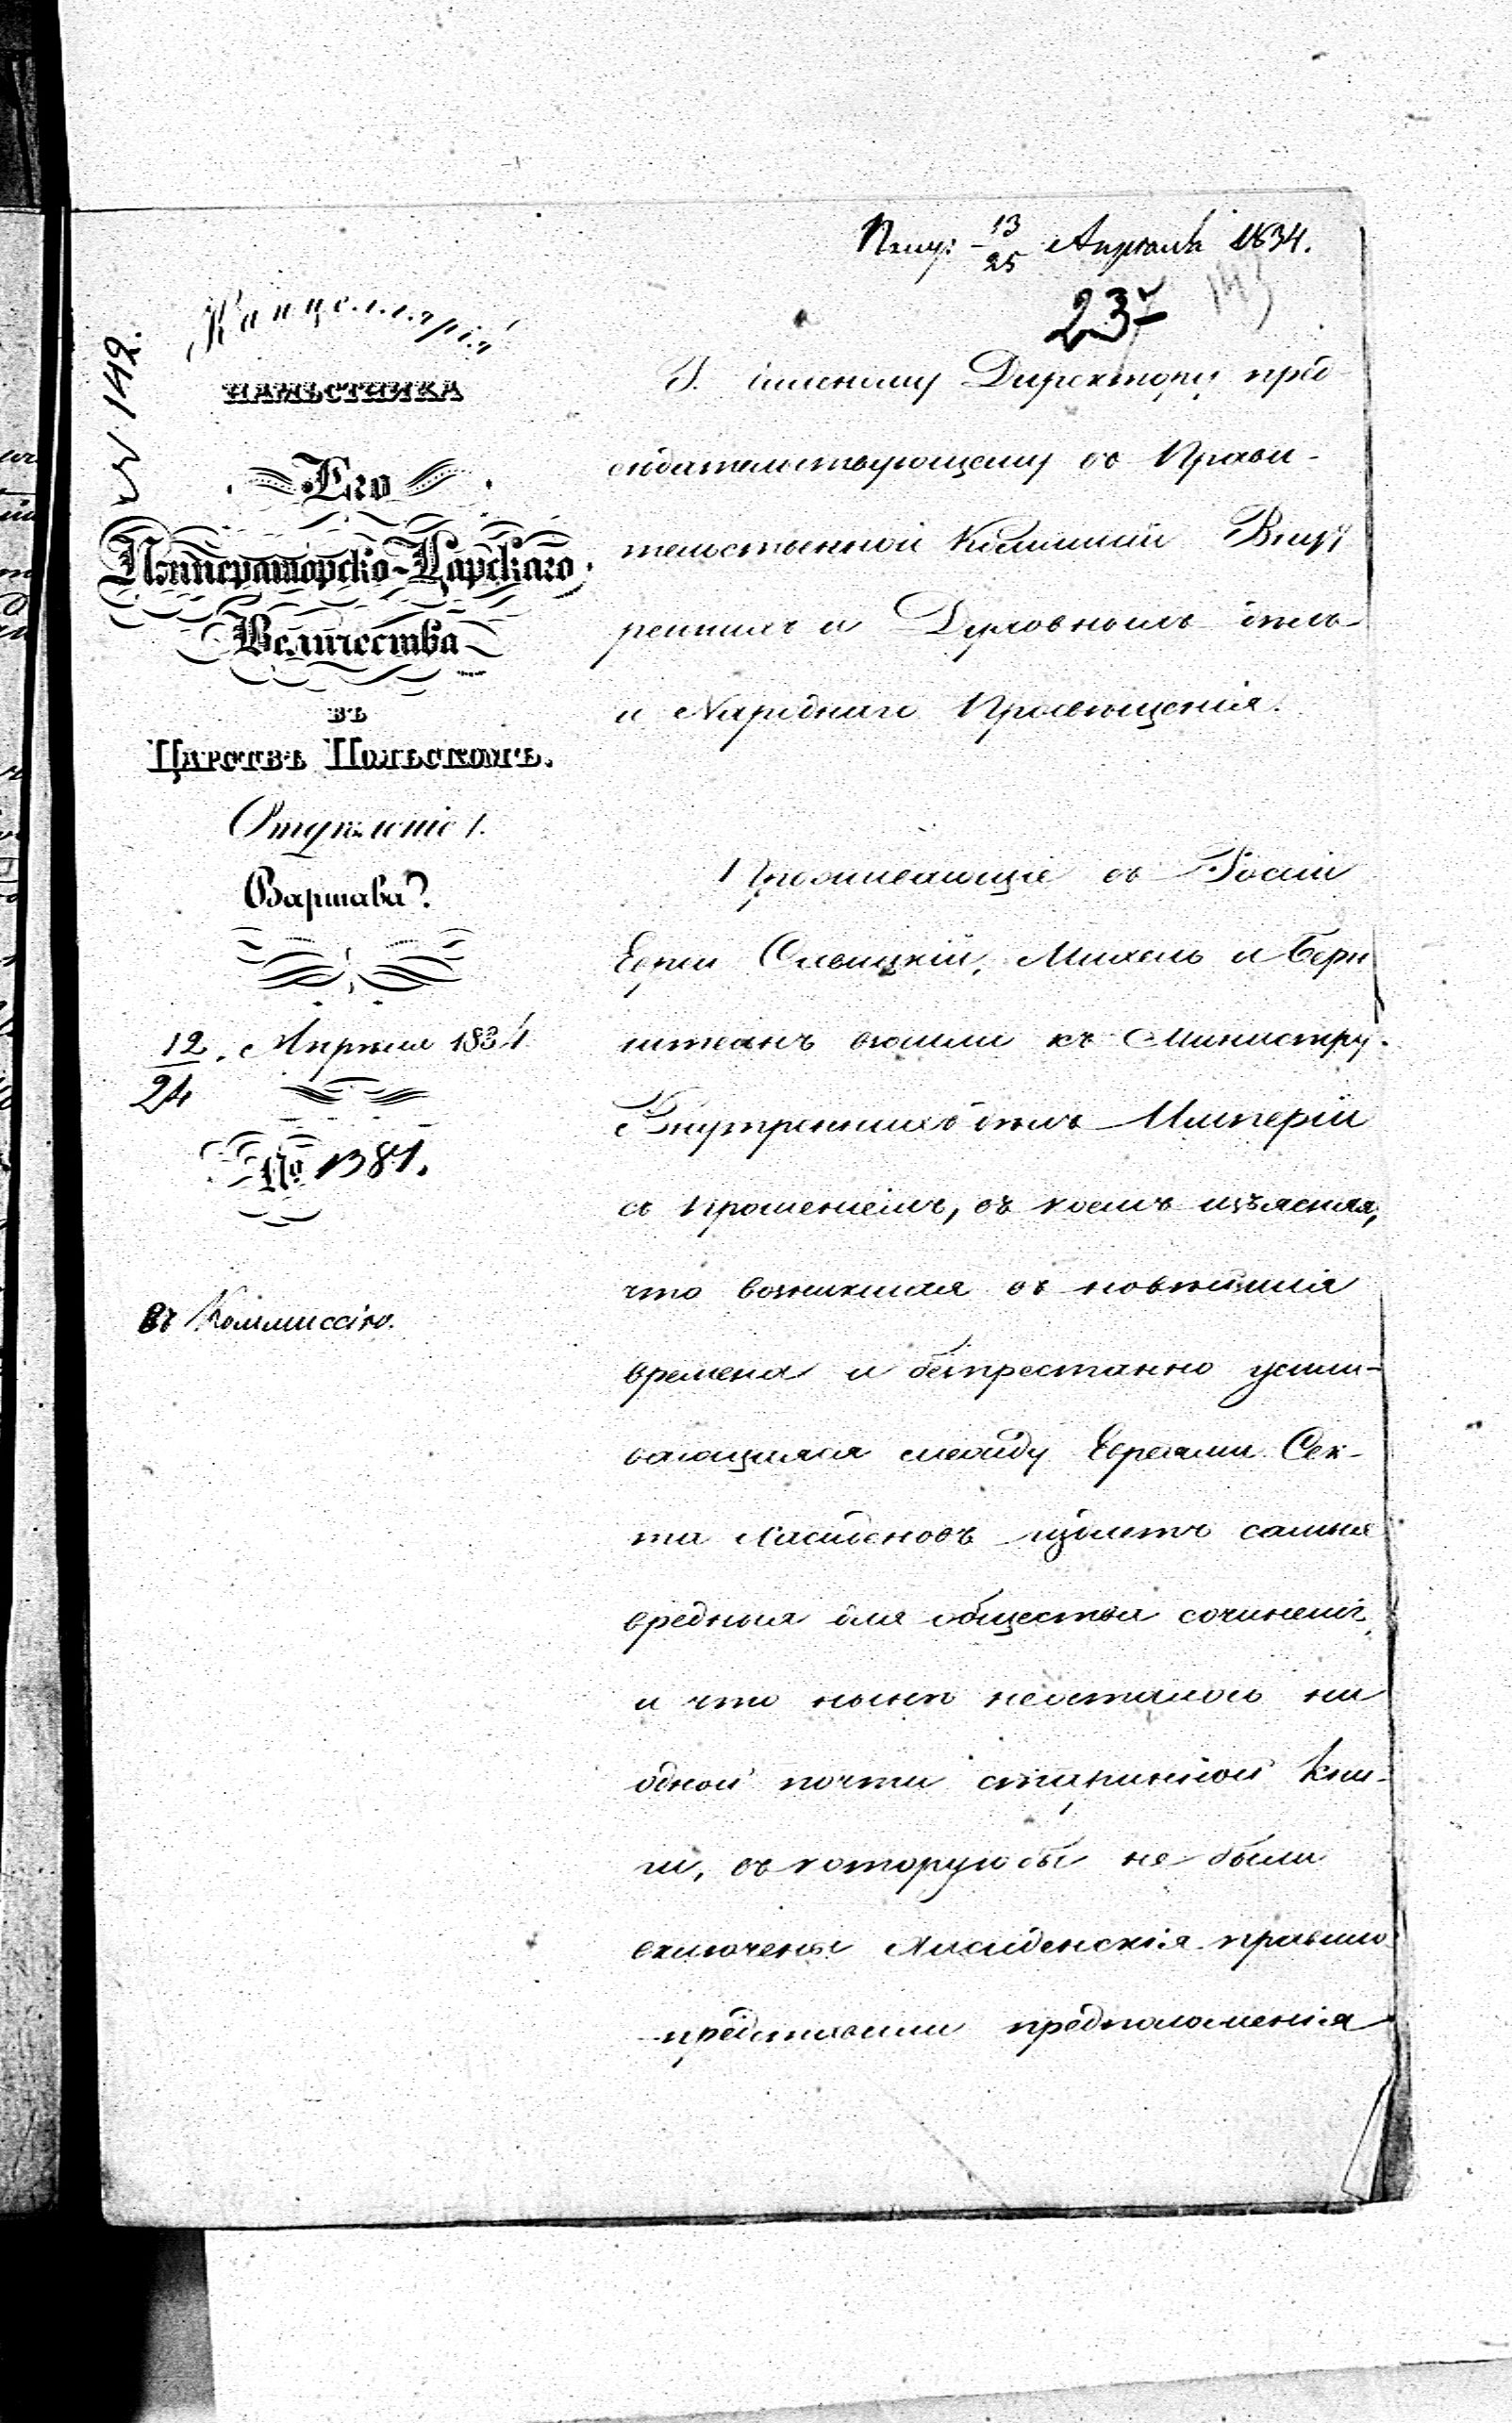 Получ: 13/25 Апрѣля 1834.
23
143
№ 142.
Канцелярія
НАМѢСТНИКА
Его
Императорско-Царскаго
Величества
ВЪ
ЦАРСТВѢ ПОЛЬСКОМЪ.
Отдѣленіе 1.
Варшава
12/24 Апрѣля 1834
№ 1381.
Въ Коммиссію.
Г. Главному Директору пред-
сѣдательствующему въ Прави-
тельственной Комиссіи Внут
реннихъ и Духовныхъ дѣлъ
и Народнаго Просвѣщенія.
Проживающіе въ Россіи
Евреи Савицкій, Михель и Берн
штейнъ вошли къ Министру
Внутреннихъ дѣлъ Имперіи
съ прошеніемъ, въ коемъ изъясняя,
что возникшая въ новѣйшія
времена и безпрестанно усили-
вающаяся между Евреями Сек-
та Хасидемовъ издаетъ самыя
вредныя для общества сочиненія,
и что нынѣ неосталось ни
одной почти старинной кни-
ги, въ которую бы не были
включены Хасидемскія правила
представили предположенія